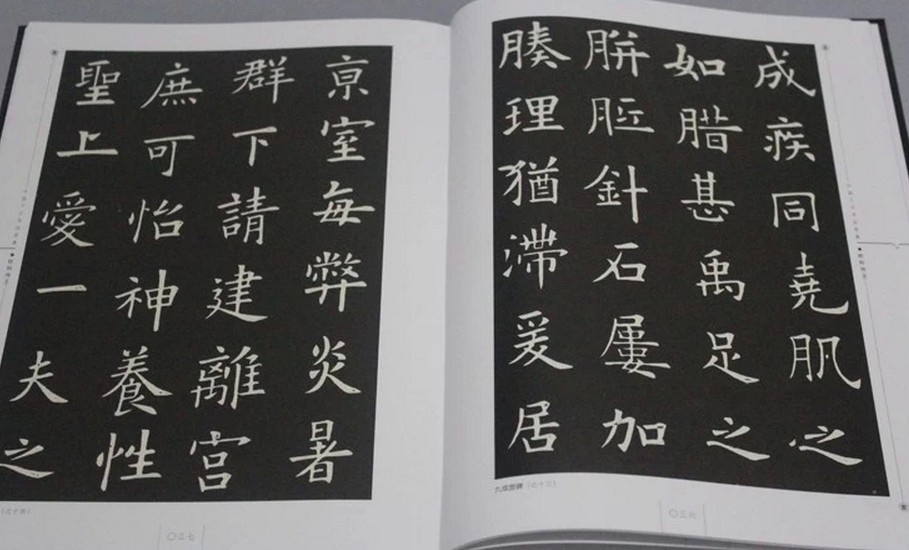 成疾同堯肌之
如腊甚禹足之
胼胝針石屢加
腠理猶滯爰居
九成宫碑
〇三六
亰室每弊炎暑
群下請建離宮
庶可怡神養性
聖上愛一夫之
〇三七